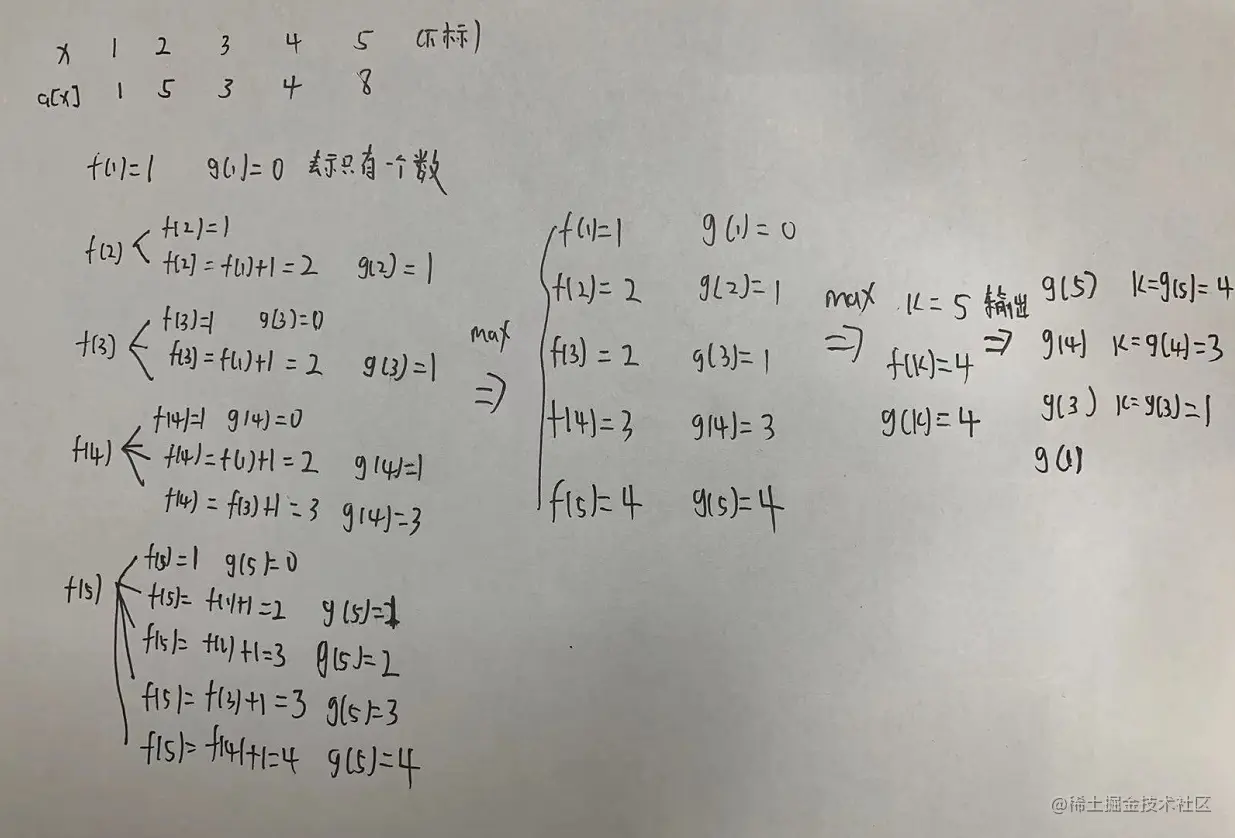 x 1 2 3 4 5 (下标)
a[x] 1 5 3 4 8
f(1)=1 g(1)=0 表示只有一个数
f(2)
f(2)=1
f(2)=f(1)+1=2 g(2)=1
f(3)
f(3)=1 g(3)=0
f(3)=f(1)+1=2 g(3)=1
f(4)
f(4)=1 g(4)=0
f(4)=f(1)+1=2 g(4)=1
f(4)=f(3)+1=3 g(4)=3
f(5)
f(5)=1 g(5)=0
f(5)=f(1)+1=2 g(5)=1
f(5)=f(2)+1=3 g(5)=2
f(5)=f(3)+1=3 g(5)=3
f(5)=f(4)+1=4 g(5)=4
max
⇒
f(1)=1 g(1)=0
f(2)=2 g(2)=1
f(3)=2 g(3)=1
f(4)=3 g(4)=3
f(5)=4 g(5)=4
max
⇒
K=5 输出
f(K)=4
g(K)=4
⇒
g(5) K=g(5)=4
g(4) K=g(4)=3
g(3) K=g(3)=1
g(1)
@稀土掘金技术社区